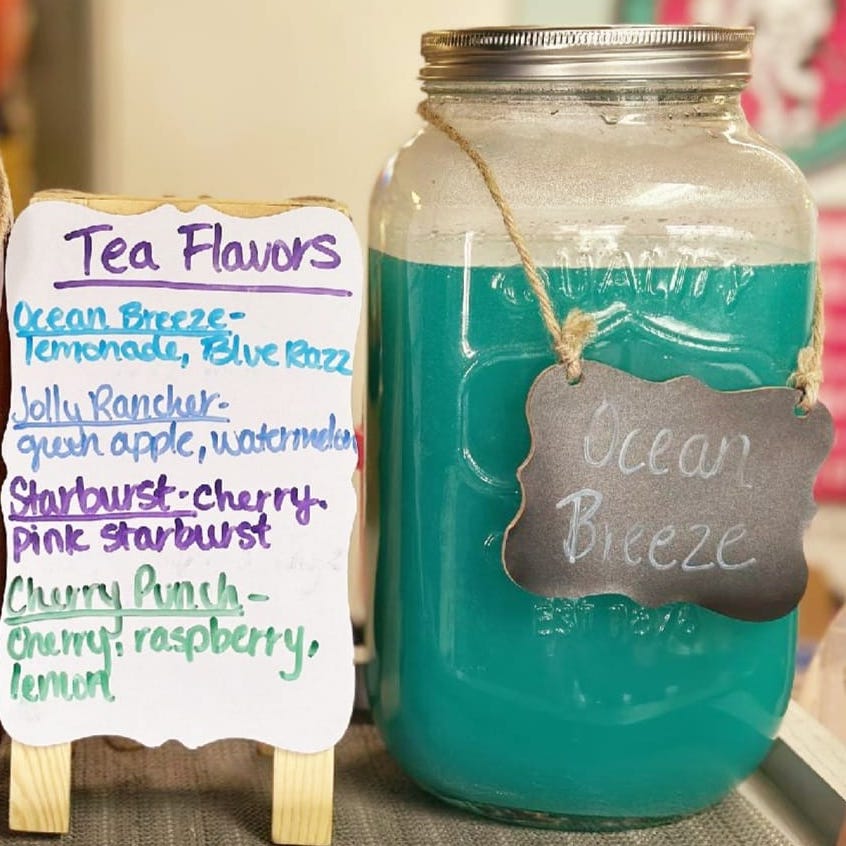 Tea Flavors
Ocean Breeze-
lemonade, Blue Razz
Jolly Rancher-
green apple, watermelon
Starburst-cherry,
pink starburst
Cherry Punch-
Cherry, raspberry,
lemon
QUALITY
Ocean
Breeze
EST 1876